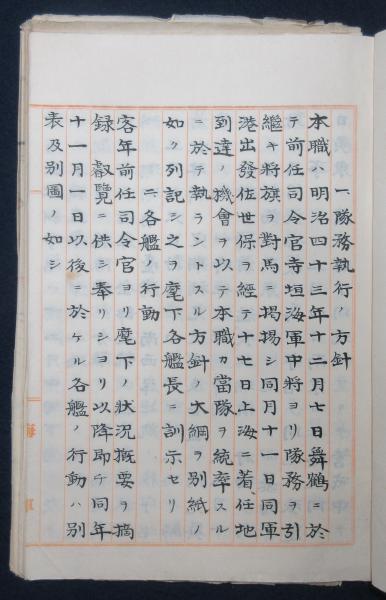 一隊務執行ノ方針
本職明治四十三年十二月七日舞鶴ニ於
テ前任司令官寺垣海軍中將ヨリ隊務ヲ引
繼キ將旗ヲ對馬ニ掲揚シ同月十一日同軍
港出發佐世保ヲ經テ十七日上海ニ着任地
到達ノ機會ヲ以テ本職カ當隊ヲ統率スル
ニ於テ執ラントスル方針ノ大綱ヲ別紙ノ
如ク列記シ之ヲ麾下各艦長ニ訓示セリ
二各艦ノ行動
客年前任司令官ヨリ麾下ノ狀況概要ヲ摘
録 叡覽ニ供シ奉リシヨリ以降即チ同年
十一月一日以後ニ於ケル各艦ノ行動ハ別
表及別圖ノ如シ
海軍